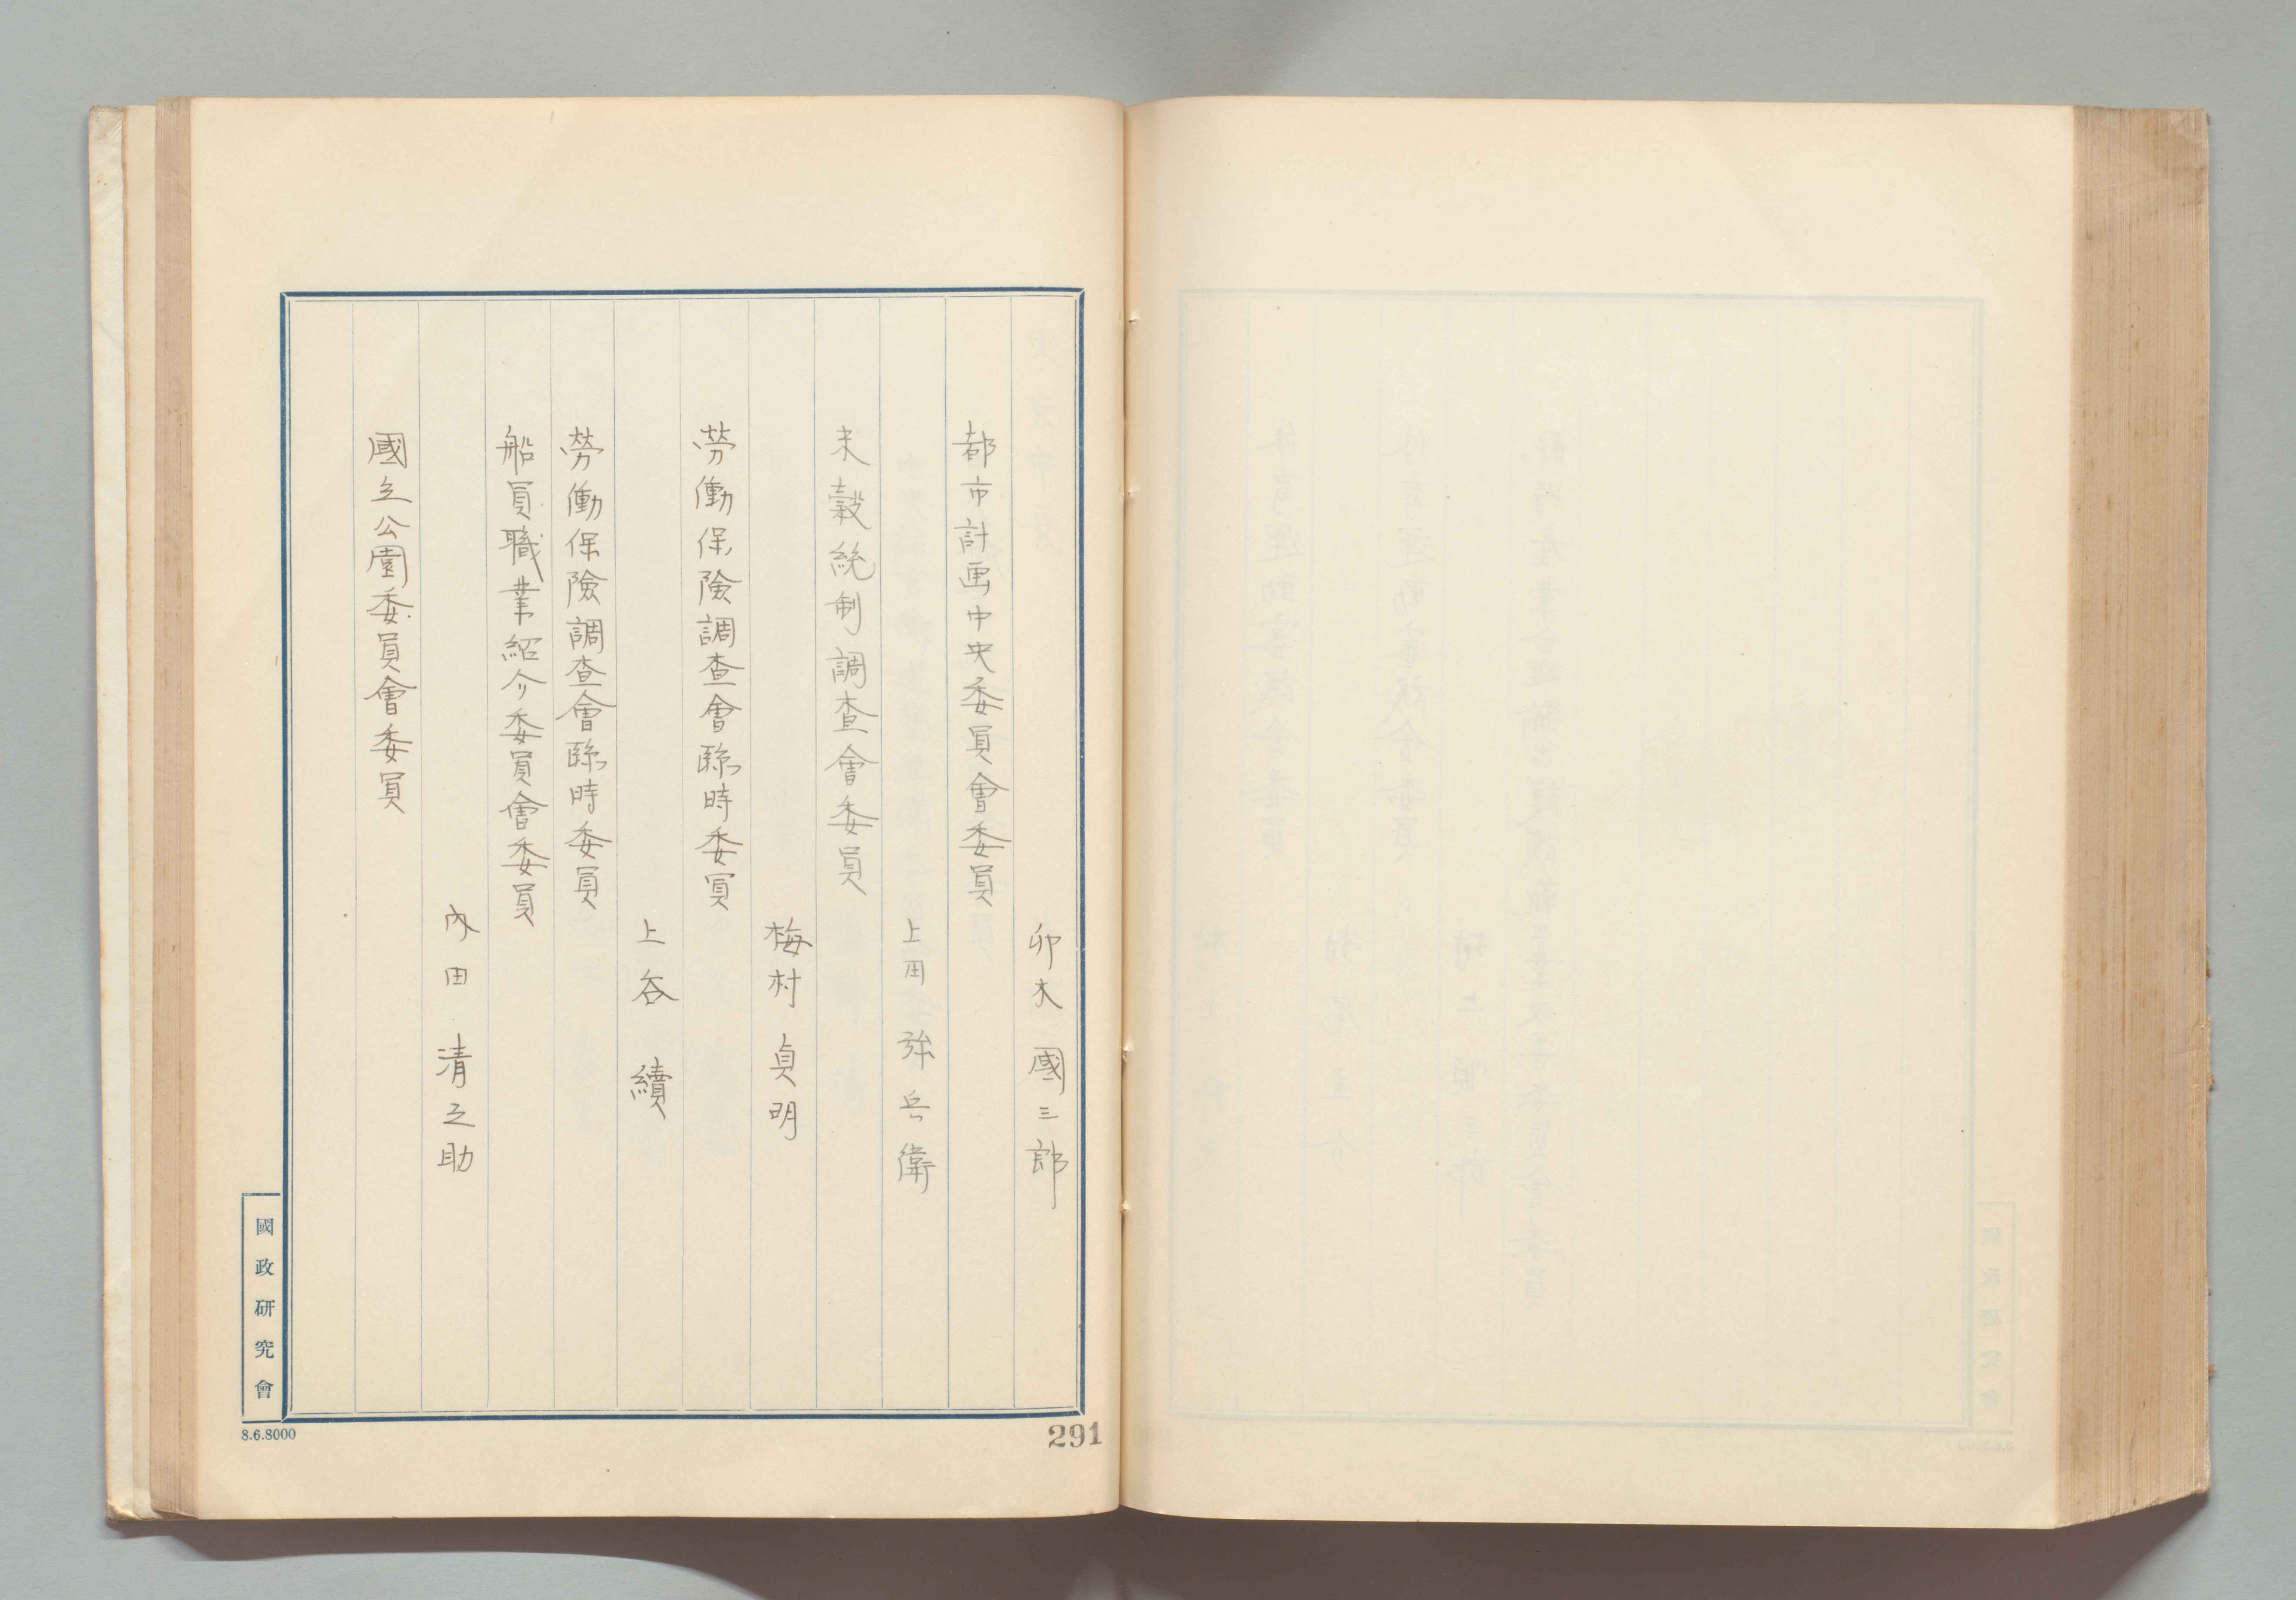 卯木國三郎
都市計画中央委員會委員
上田弥兵衛
米穀統制調査會委員
梅村貞明
勞働保險調査會臨時委員
上谷續
勞働保險調査會臨時委員
船員職業紹介委員會委員
內田清之助
國立公園委員會委員
國政研究會
8.6.8000
291